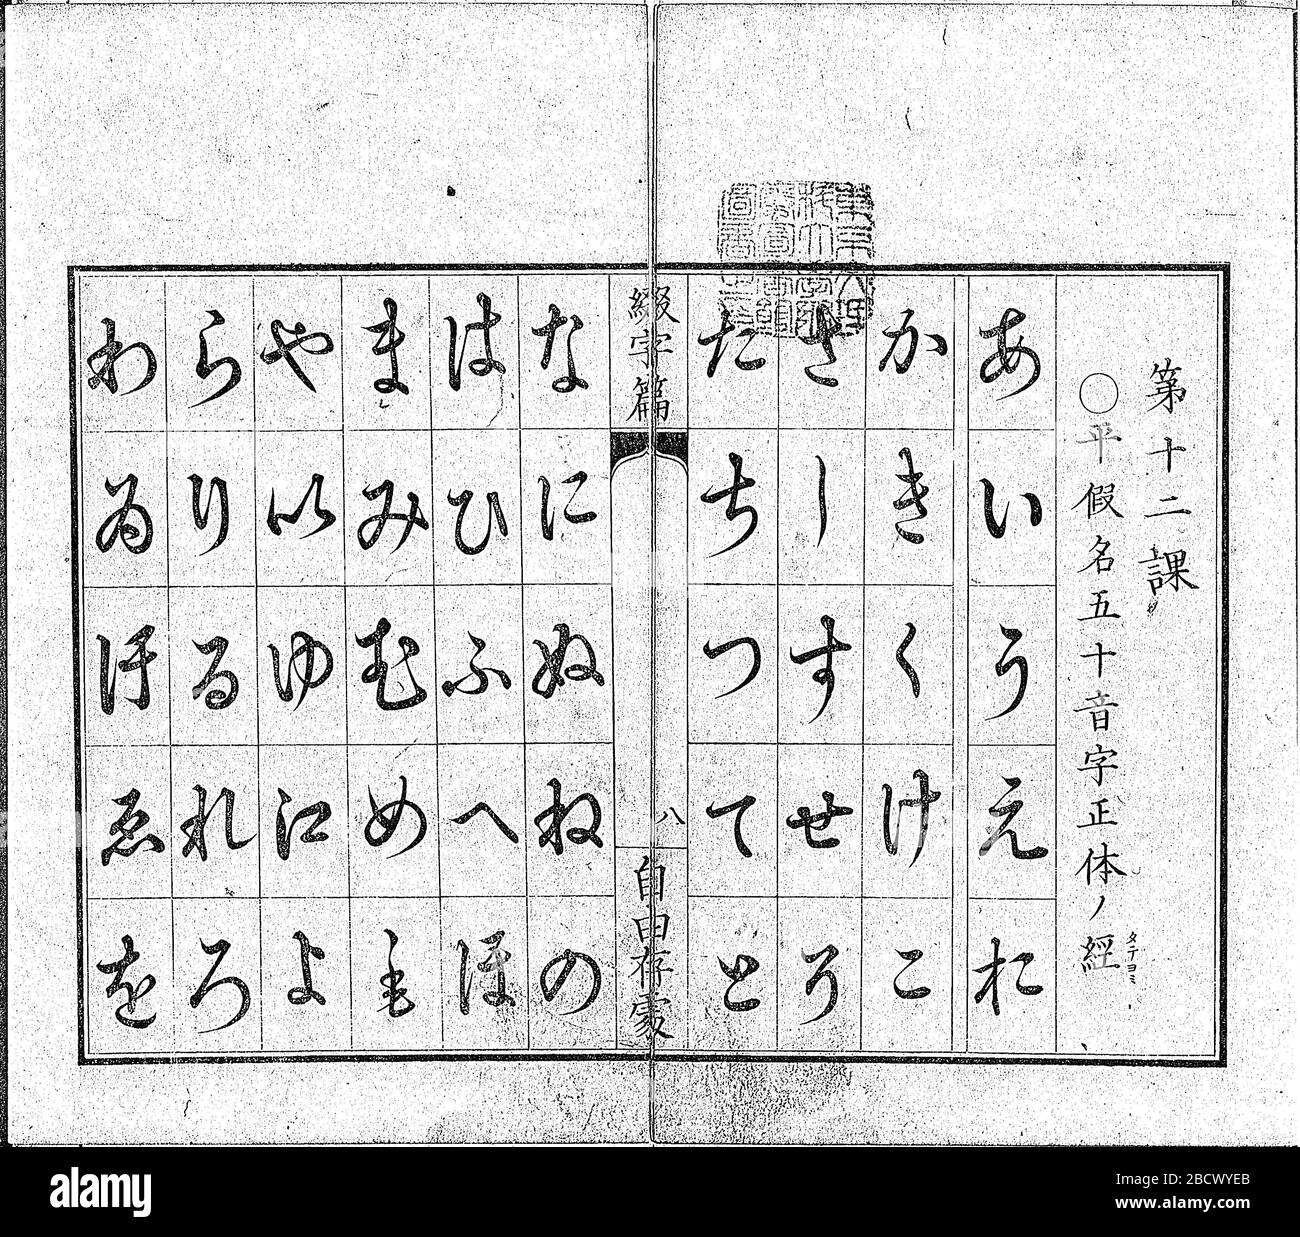 第十二課
○平假名五十音字正体ノ經
タテヨミ
あいうえお
かきくけこ
さしすせそ
たちつてと
綴字篇
八
自由存
なにぬねの
はひふへほ
まみむめも
や以ゆ江よ
らりるれろ
わゐ汙ゑを
alamy
Image ID: 2BCWYEB
www.alamy.com